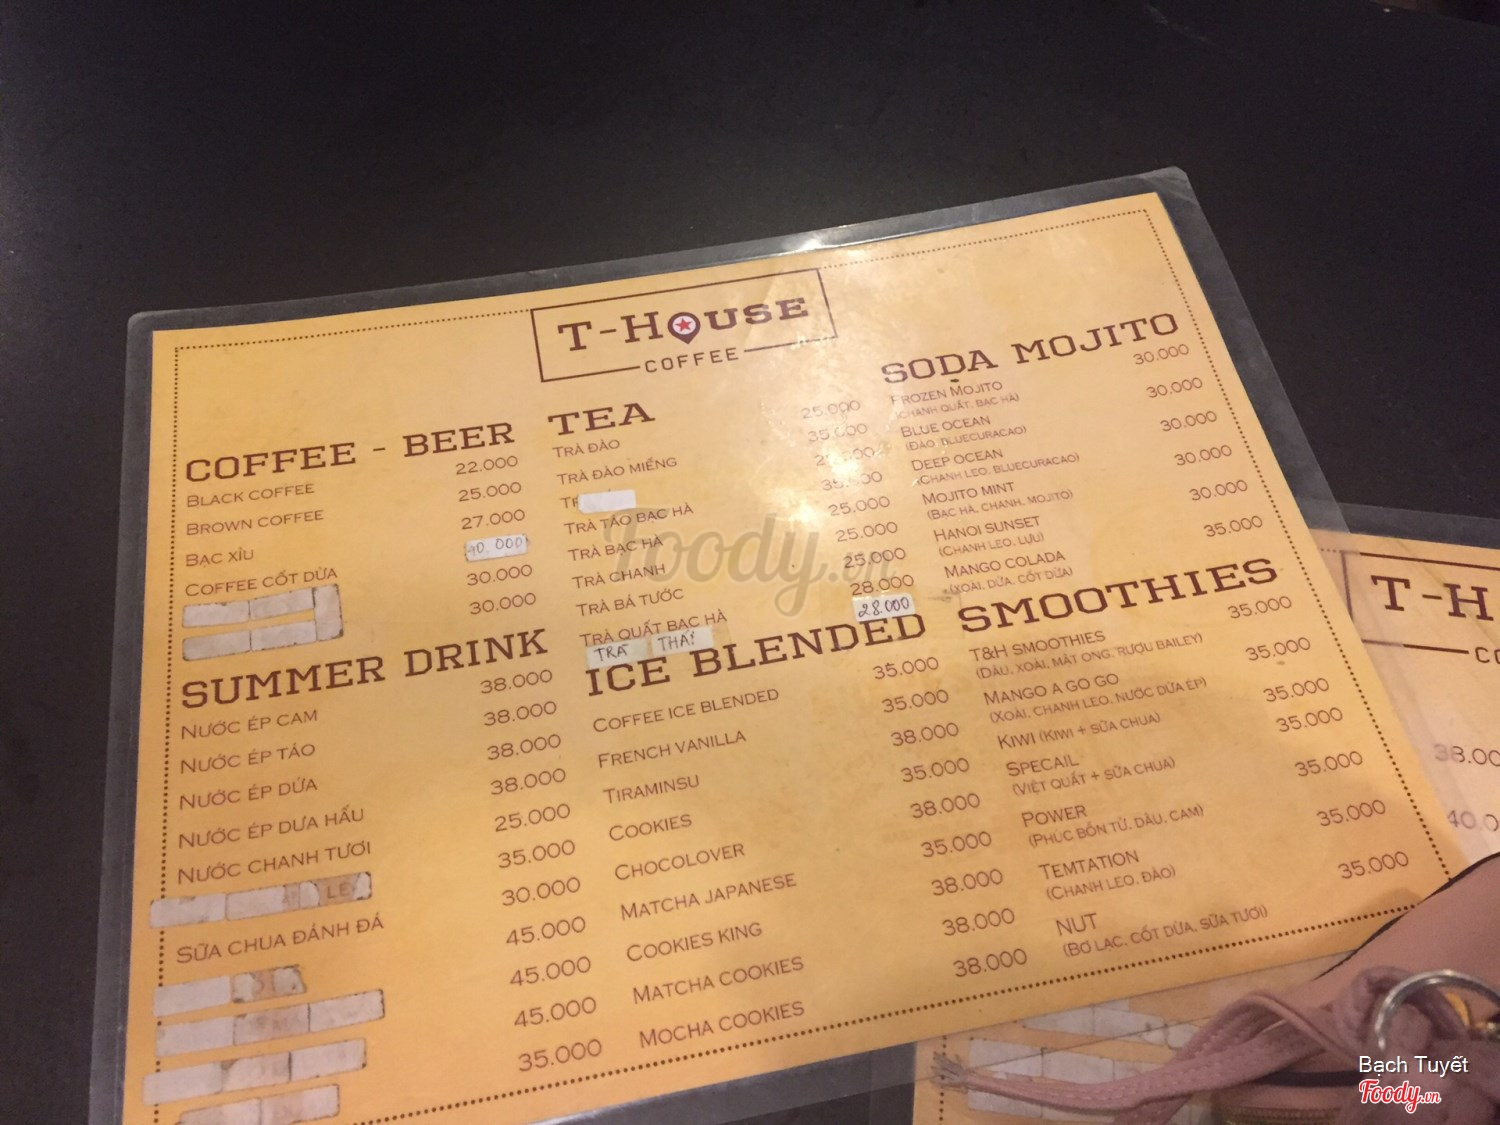 T-HOUSE
COFFEE
COFFEE - BEER
BLACK COFFEE 22.000
BROWN COFFEE 25.000
BẠC XỈU 27.000
COFFEE CỐT DỪA 40.000
30.000
30.000
SUMMER DRINK
NƯỚC ÉP CAM 38.000
NƯỚC ÉP TÁO 38.000
NƯỚC ÉP DỨA 38.000
NƯỚC ÉP DƯA HẤU 38.000
NƯỚC CHANH TƯƠI 25.000
35.000
SỮA CHUA ĐÁNH ĐÁ 30.000
45.000
45.000
45.000
35.000
TEA
TRÀ ĐÀO 25.000
TRÀ ĐÀO MIẾNG 35.000
TRÀ TÁO BẠC HÀ 35.000
TRÀ BẠC HÀ 25.000
TRÀ CHANH 25.000
TRÀ BÁ TƯỚC 25.000
TRÀ QUẤT BẠC HÀ 28.000
TRÀ THÁI 28.000
ICE BLENDED
COFFEE ICE BLENDED 35.000
FRENCH VANILLA 35.000
TIRAMINSU 38.000
COOKIES 35.000
CHOCOLOVER 38.000
MATCHA JAPANESE 35.000
COOKIES KING 38.000
MATCHA COOKIES 38.000
MOCHA COOKIES 38.000
SODA MOJITO
FROZEN MOJITO 30.000
(CHANH QUẤT, BẠC HÀ)
BLUE OCEAN 30.000
(ĐÀO, BLUECURACAO)
DEEP OCEAN 30.000
(CHANH LEO, BLUECURACAO)
MOJITO MINT 30.000
(BẠC HÀ, CHANH, MOJITO)
HANOI SUNSET 30.000
(CHANH LEO, LỰU)
MANGO COLADA 35.000
(XOÀI, DỨA, CỐT DỪA)
SMOOTHIES
T&H SMOOTHIES 35.000
(DÂU, XOÀI, MẬT ONG, RƯỢU BAILEY)
MANGO A GO GO 35.000
(XOÀI, CHANH LEO, NƯỚC DỨA ÉP)
KIWI (KIWI + SỮA CHUA) 35.000
SPECAIL 35.000
(VIỆT QUẤT + SỮA CHUA)
POWER 35.000
(PHÚC BỒN TỬ, DÂU, CAM)
TEMTATION 35.000
(CHANH LEO, ĐÀO)
NUT 35.000
(BƠ LẠC, CỐT DỪA, SỮA TƯƠI)
T-H
CO
38.00
40.0
Foody.vn
Bạch Tuyết
Foody.vn